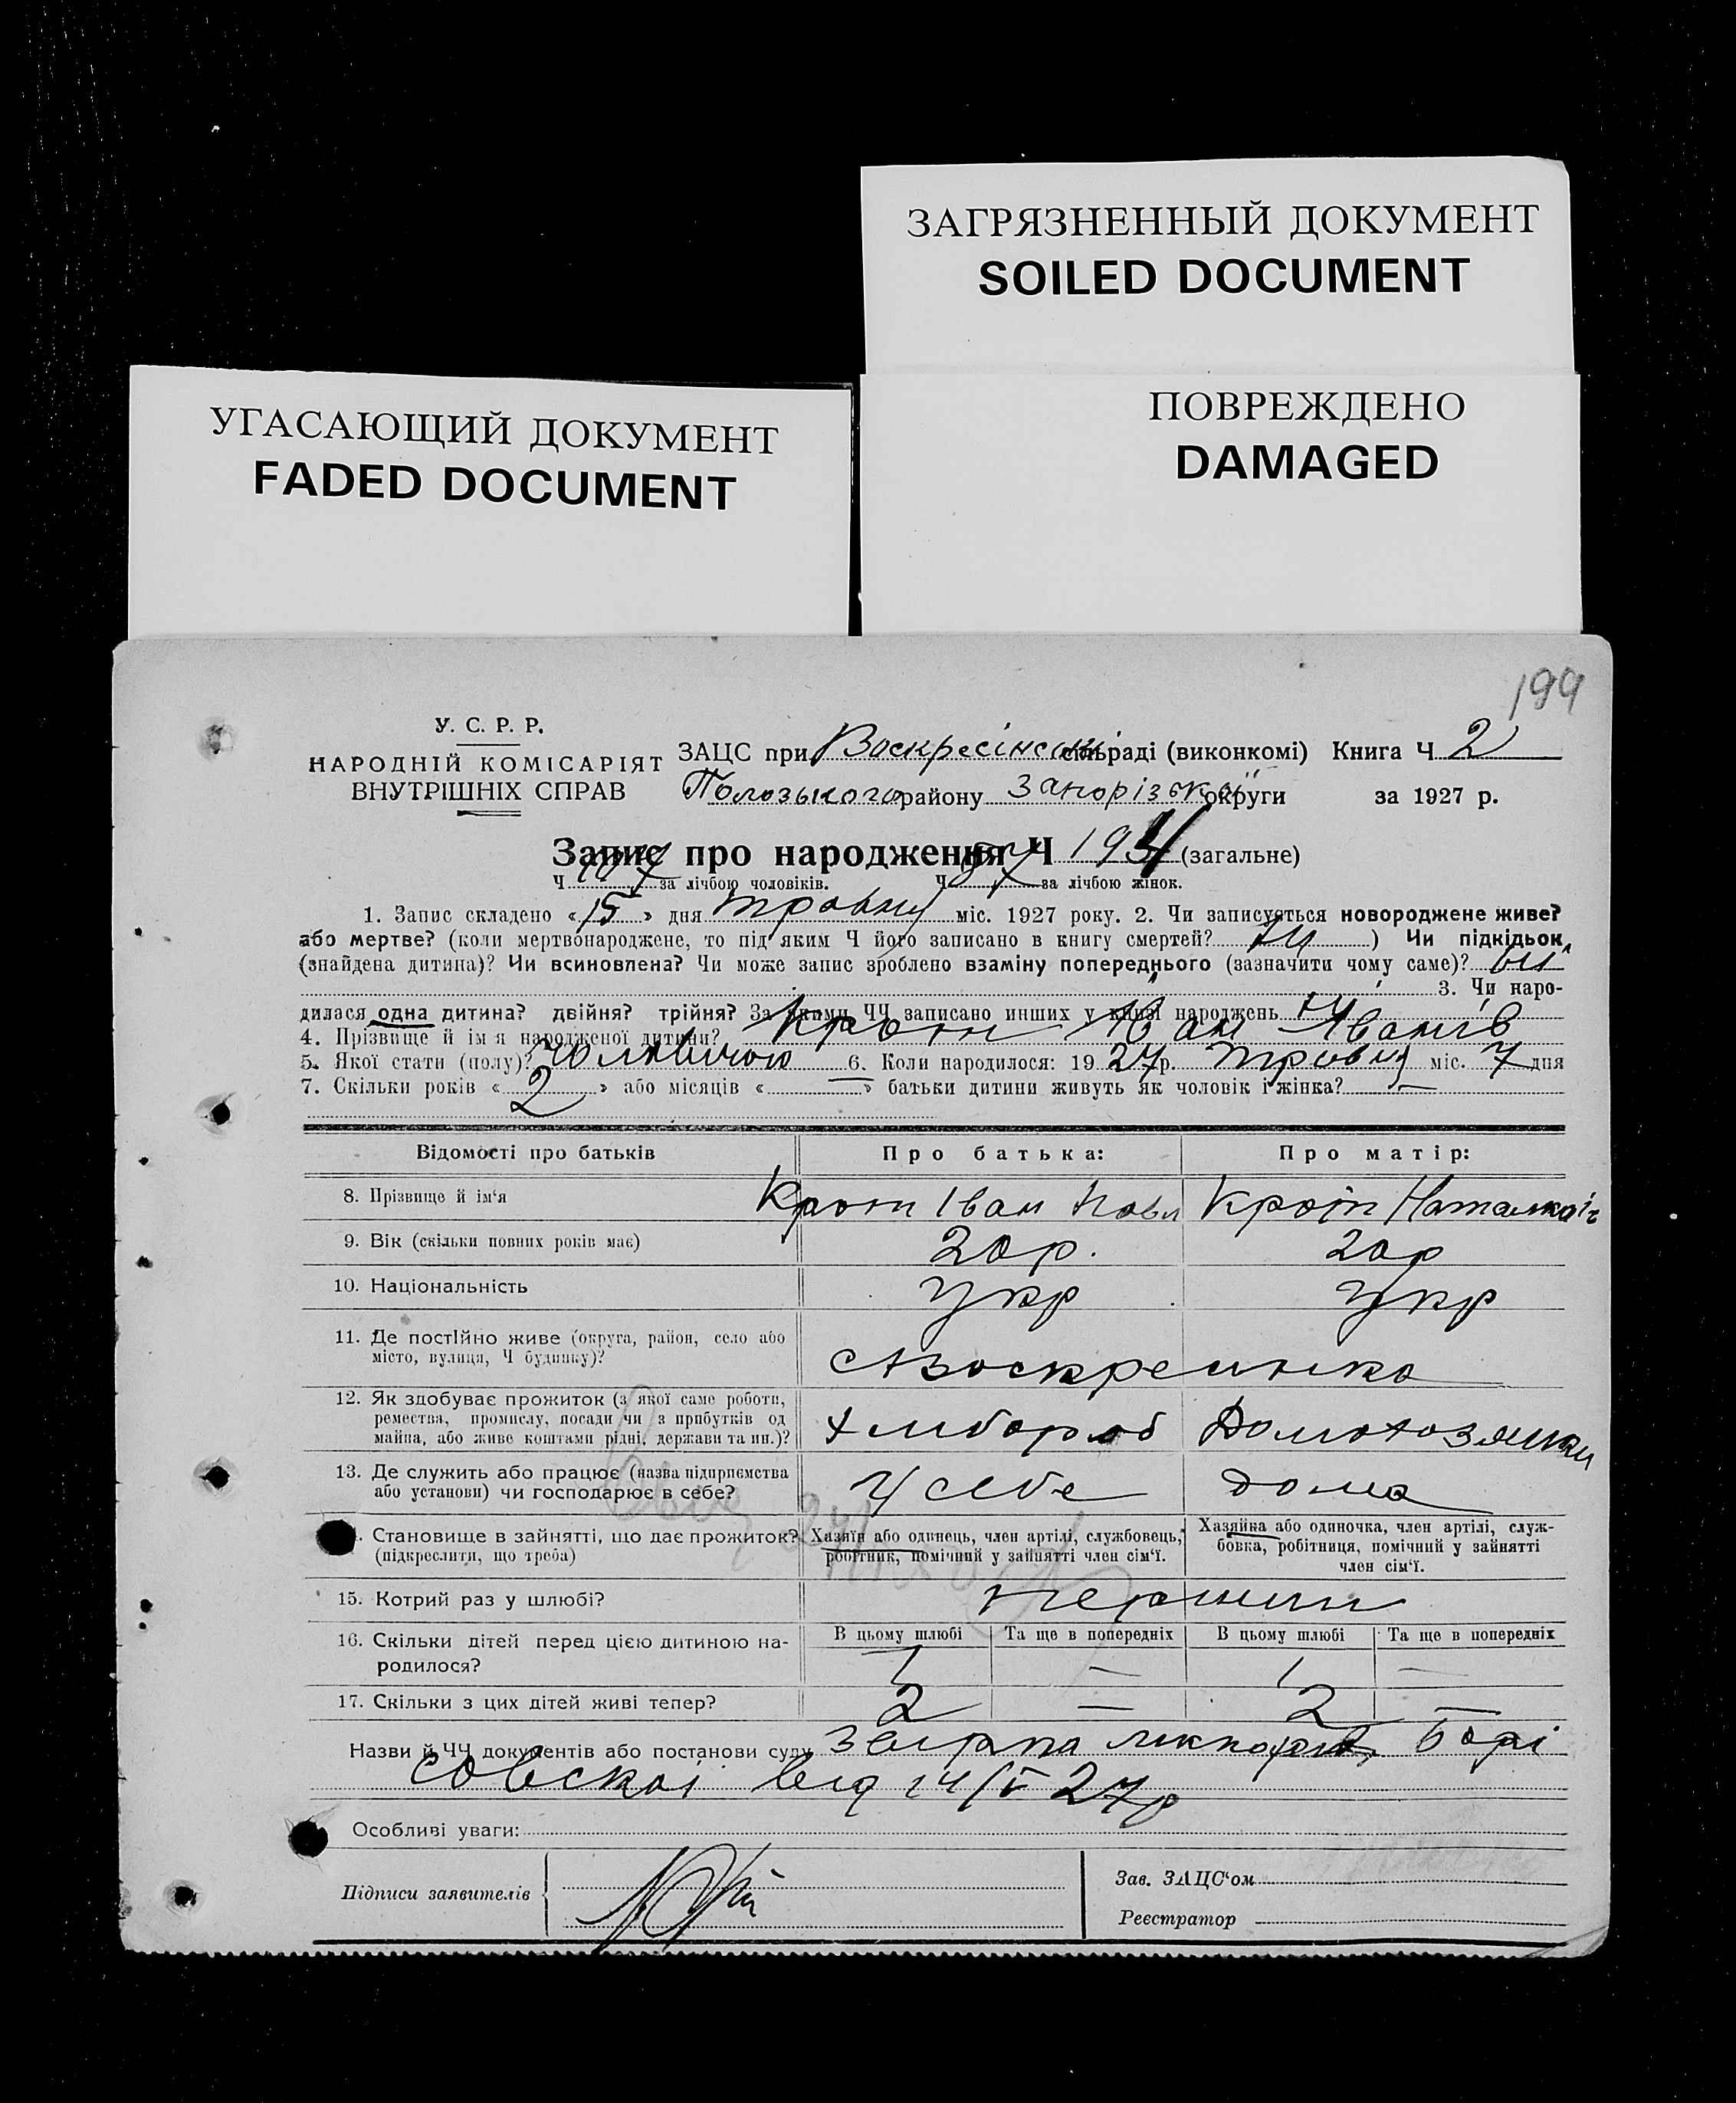 ЗАГРЯЗНЕННЫЙ ДОКУМЕНТ
SOILED DOCUMENT
УГАСАЮЩИЙ ДОКУМЕНТ
FADED DOCUMENT
ПОВРЕЖДЕНО
DAMAGED
199
У. С. Р. Р.
НАРОДНІЙ КОМІСАРІЯТ
ВНУТРІШНІХ СПРАВ
ЗАЦС при Воскресінській раді (виконкомі) Книга Ч. 2
Пологзького району Запорізької округи за 1927 р.
Запис про народження Ч 194 (загальне)
Ч 107 за лічбою чоловіків. Ч 87 за лічбою жінок.
1. Запис складено «15» дня травня міс. 1927 року. 2. Чи записується новороджене живе?
або мертве? (коли мертвонароджене, то під яким Ч його записано в книгу смертей? ) Чи підкідьок
(знайдена дитина)? Чи всиновлена? Чи може запис зроблено взаміну попереднього (зазначити чому саме)?
3. Чи наро-
дилася одна дитина? двійня? трійня? За якими ЧЧ записано инших у книзі народжень
4. Прізвище й ім'я народженої дитини? Крот Іван Іванів
5. Якої стати (полу)? 6. Коли народилося: 1927р. травня міс. 7 дня
7. Скільки років «2» або місяців «—» батьки дитини живуть як чоловік і жінка? —
Відомості про батьків Про батька: Про матір:
8. Прізвище й ім'я Крот Іван Павл Крот Наталка
9. Вік (скільки повних років має) 20р. 20р
10. Національність Укр Укр
11. Де постійно живе (округа, район, село або
місто, вулиця, Ч будинку)? с Воскресинка
12. Як здобуває прожиток (з якої саме роботи,
ремества, промислу, посади чи з прибутків од
майна, або живе коштами рідні, держави та ин.)? Хлібороб Домохазяйки
13. Де служить або працює (назва підприємства
або установи) чи господарює в себе? У себе дома
Становище в зайнятті, що дає прожиток?
(підкреслити, що треба)
Хазяїн або одинець, член артілі, службовець,
робітник, помічний у зайнятті член сім'ї.
Хазяйка або одиночка, член артілі, служ-
бовка, робітниця, помічний у зайнятті
член сім'ї.
15. Котрий раз у шлюбі? перший
16. Скільки дітей перед цією дитиною на-
родилося?
В цьому шлюбі Та ще в попередніх В цьому шлюбі Та ще в попередніх
1 — 1 —
17. Скільки з цих дітей живі тепер? 2 — 2 —
Назви й ЧЧ документів або постанови суду
від 14/V 27р
Особливі уваги:
Підписи заявителів
Зав. ЗАЦС'ом
Реєстратор